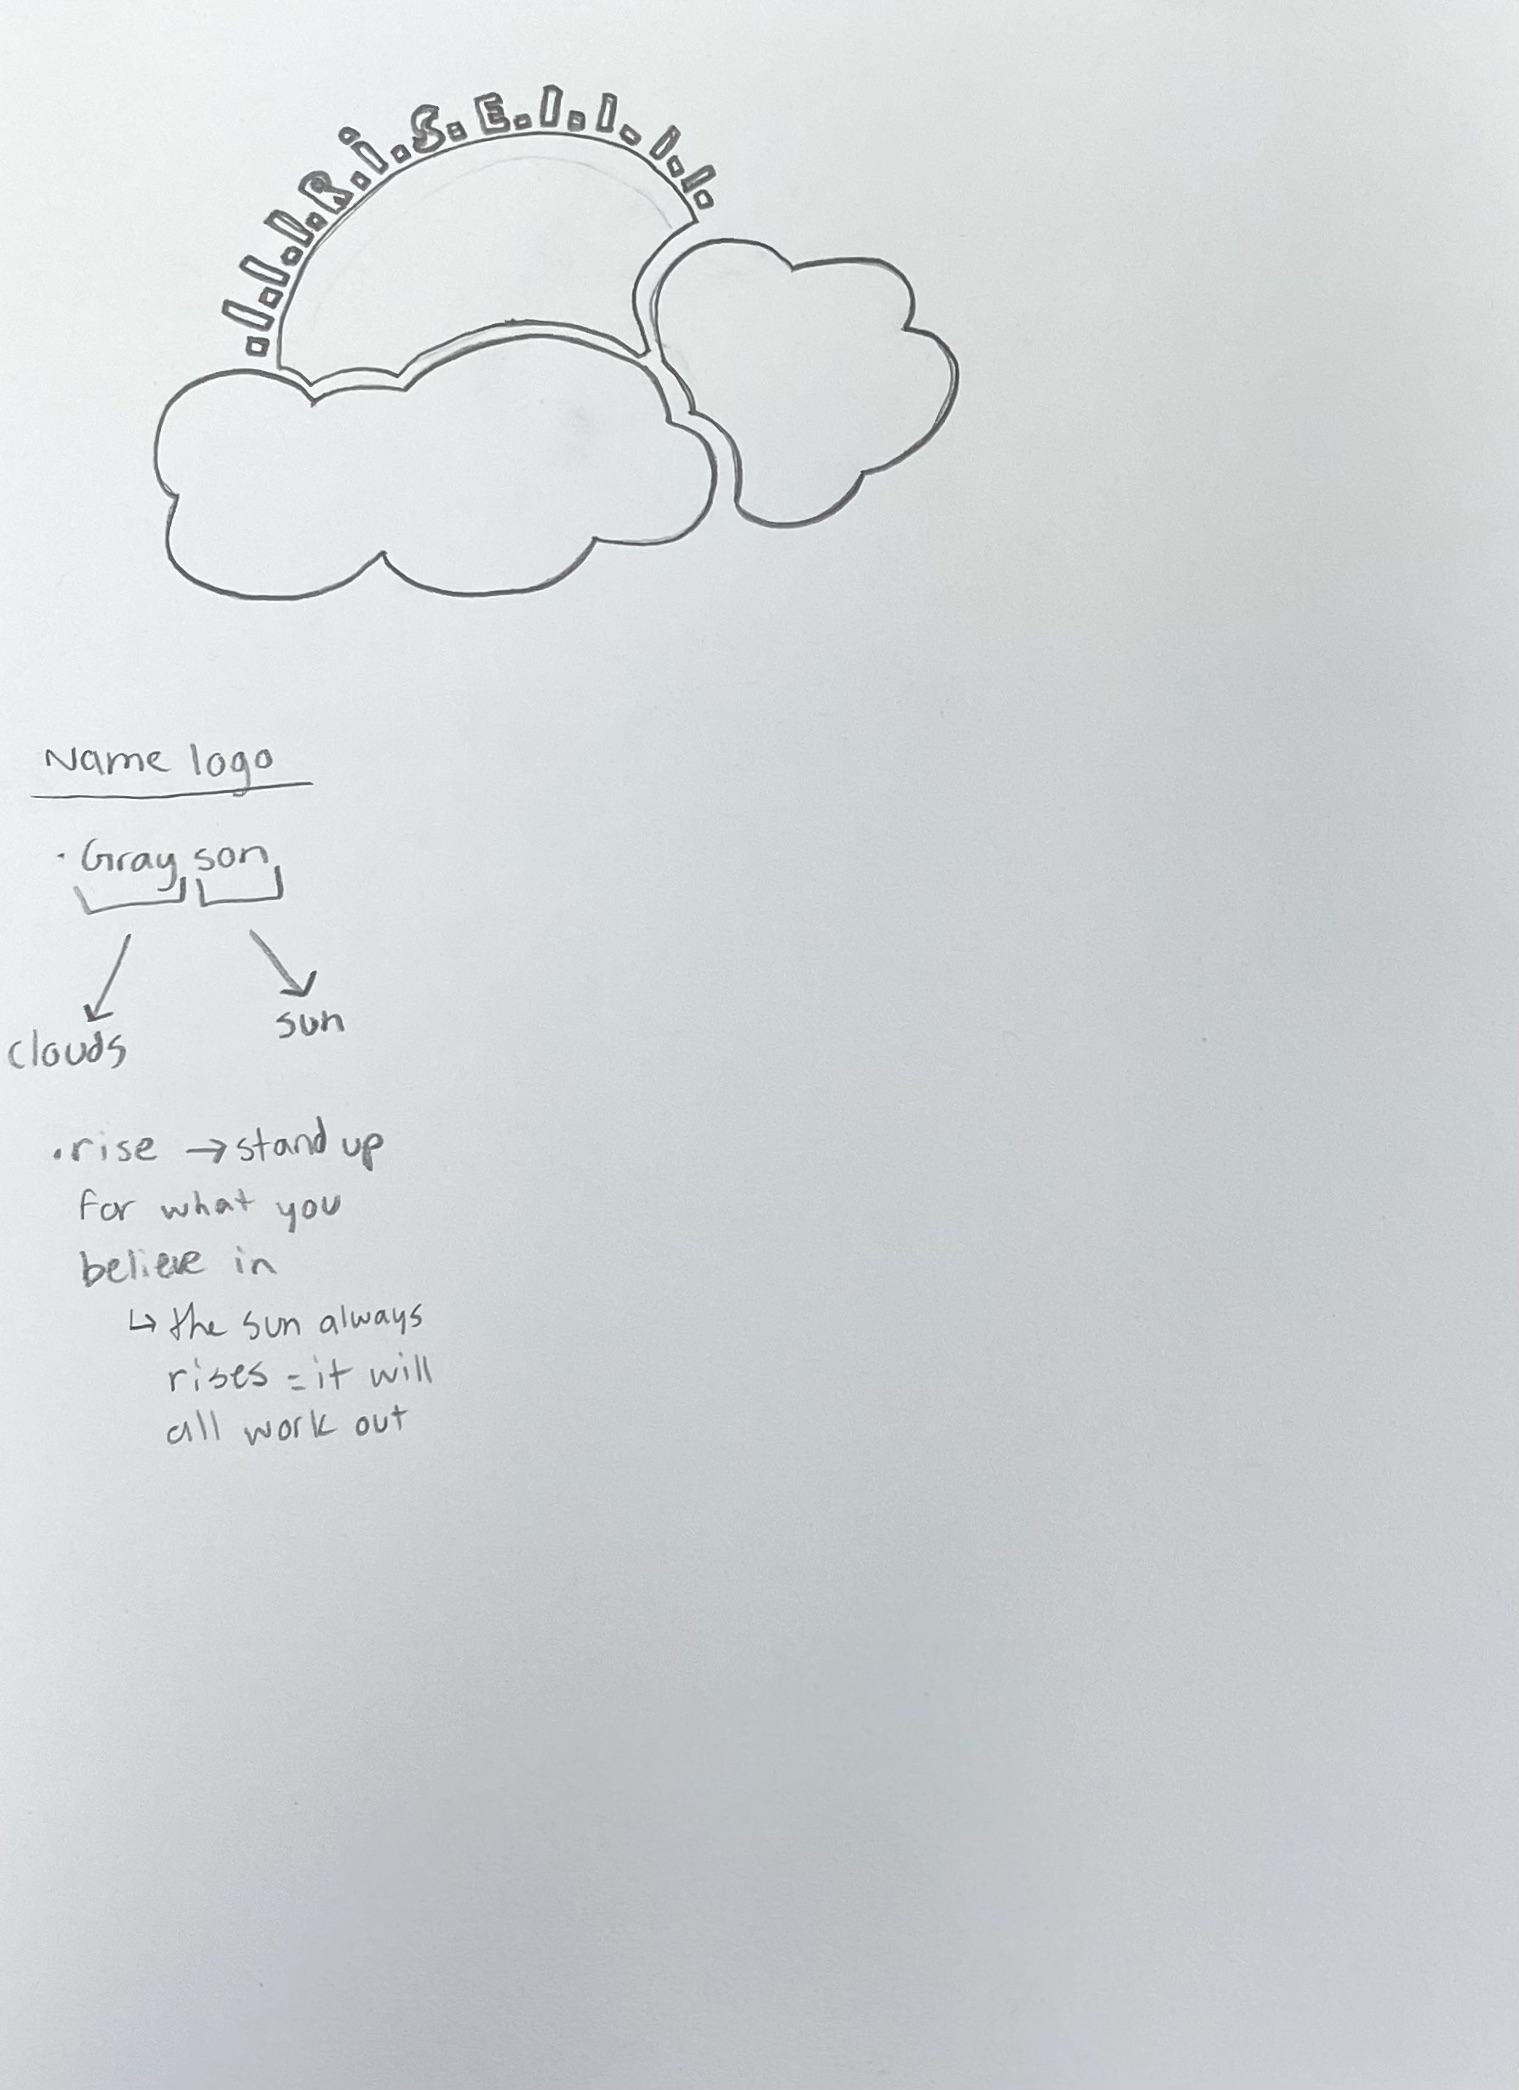 .I.I.I.R.i.S.E.I.I.I.I.
Name logo
· Gray son
clouds sun
· rise → stand up
for what you
believe in
↳ the sun always
rises = it will
all work out